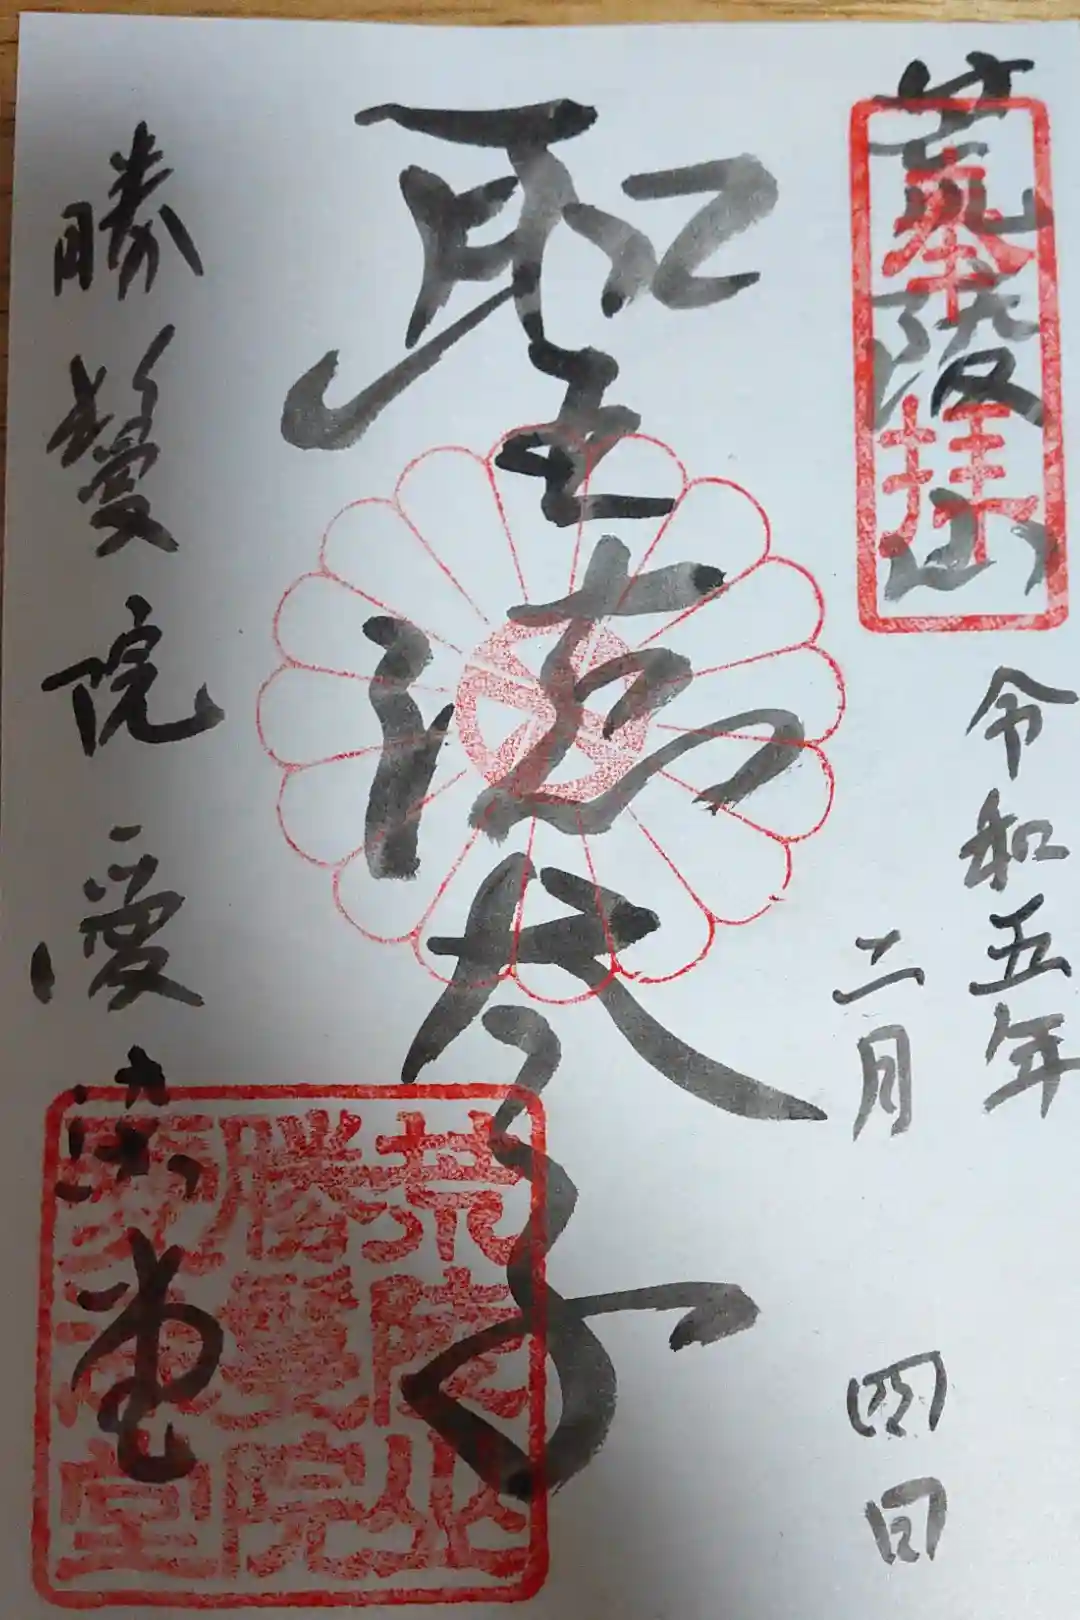 荒陵山
奉拝
令和五年
二月 四日
聖徳太子
勝鬘院愛染堂
荒陵山
勝鬘院
愛染堂